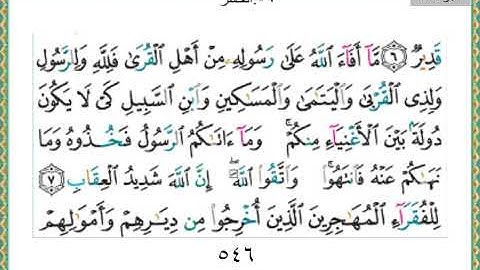 قَدِيرٌ ٦ مَّآ أَفَآءَ اللَّهُ عَلَىٰ رَسُولِهِۦ مِنْ أَهْلِ الْقُرَىٰ فَلِلَّهِ وَلِلرَّسُولِ
وَلِذِى الْقُرْبَىٰ وَالْيَتَٰمَىٰ وَالْمَسَٰكِينِ وَابْنِ السَّبِيلِ كَىْ لَا يَكُونَ
دُولَةًۢ بَيْنَ الْأَغْنِيَآءِ مِنكُمْ ۚ وَمَآ ءَاتَىٰكُمُ الرَّسُولُ فَخُذُوهُ وَمَا
نَهَىٰكُمْ عَنْهُ فَانتَهُوا۟ ۚ وَاتَّقُوا۟ اللَّهَ ۖ إِنَّ اللَّهَ شَدِيدُ الْعِقَابِ ٧
لِلْفُقَرَآءِ الْمُهَٰجِرِينَ الَّذِينَ أُخْرِجُوا۟ مِن دِيَٰرِهِمْ وَأَمْوَٰلِهِمْ
٥٤٦